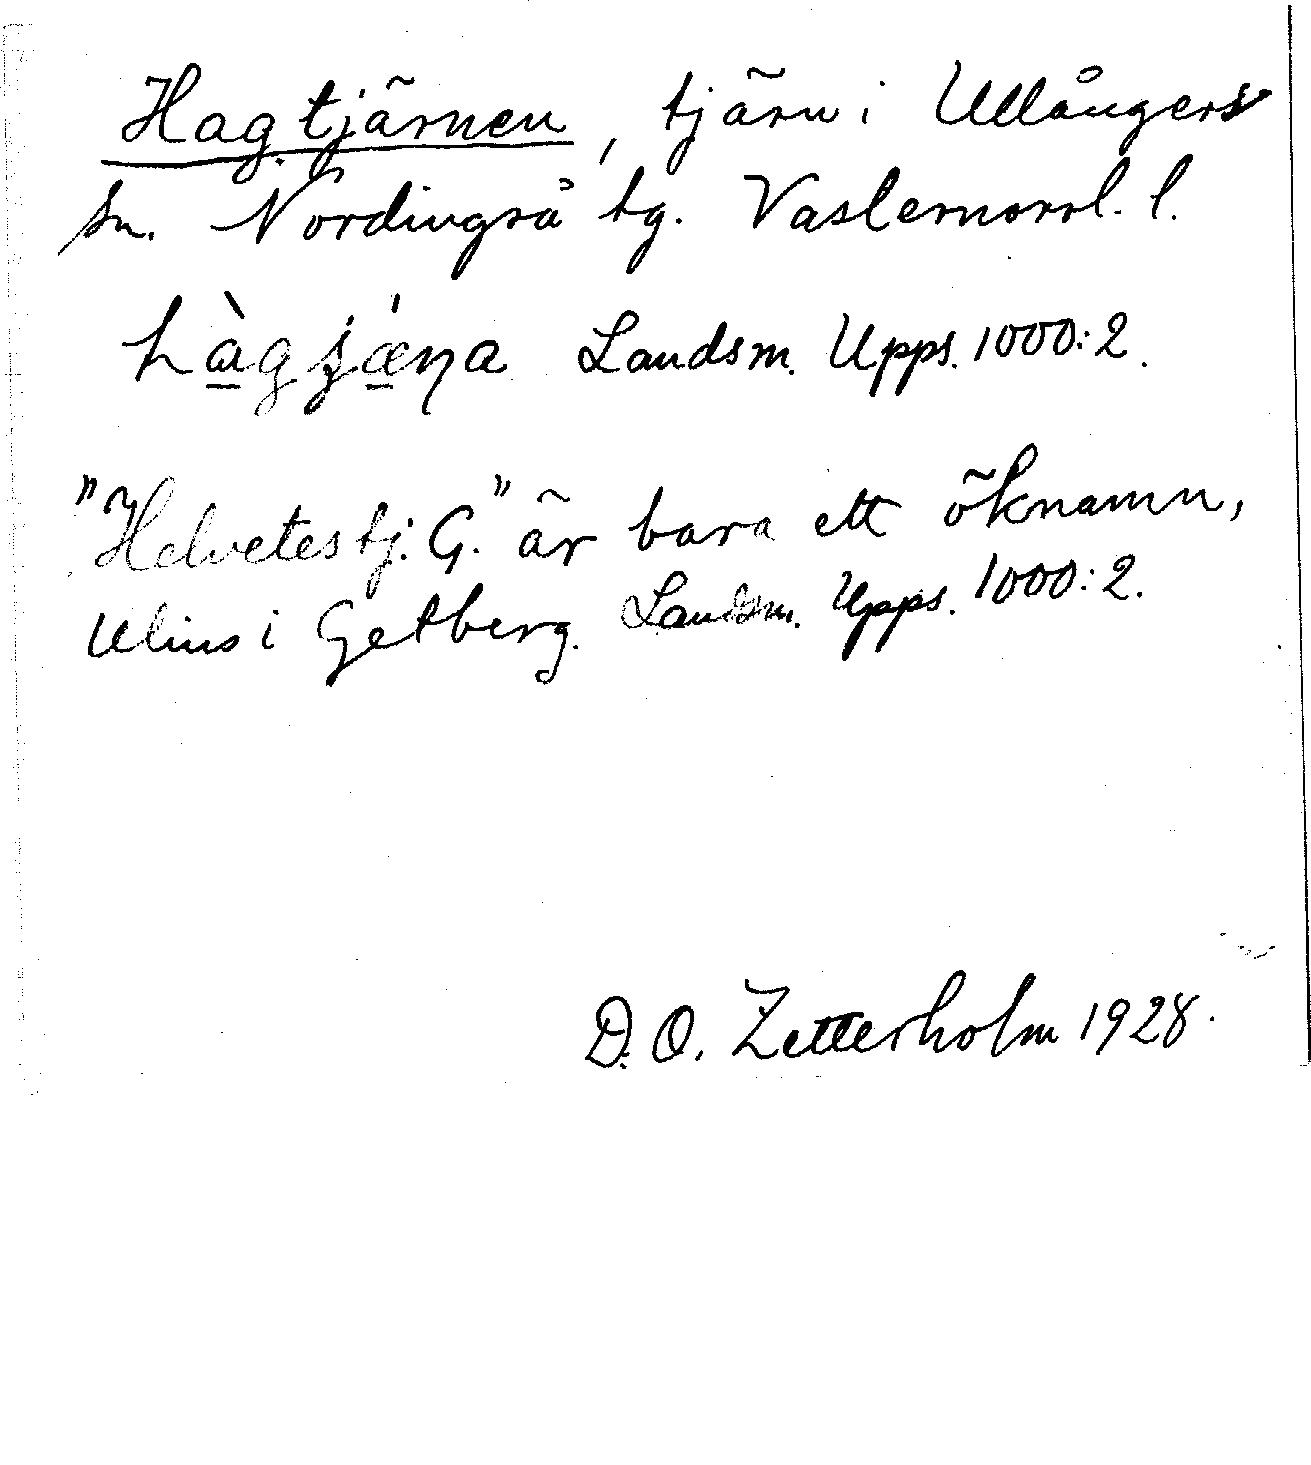 Hagtjärnen, tjärn i Ullångers
sn. Nordingrå tg. Vasternorrl. l.
hàgjæ̀ŋa Landsm. Upps. 1000:2.
"Helvetestj. G." är bara ett öknamn,
Ulius i Getberg. Landsm. Upps. 1000:2.
D. O. Zetterholm 1928.